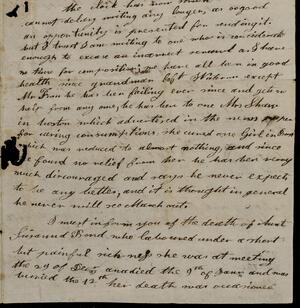 The clock has now struck
cannot delay writing any longer, as so good
an opportunity is presented for sending it.
but I trust I am writing to one who is considerate
enough to excuse an incorrect scrawl as I have
no time for composition, we have all been in good
health since grandmam left Wilmown except
He has been failing ever since and gets no
help from any one, he has been to one Mr Shaw
in boston which advertised in the news paper
for curing consumptions, she cured one Girl in
which was reduced to almost nothing, and since
he found no relief from her he has been very
much discouraged and says he never expects
to be any better, and it is thought in general
he never will see March as its
I must inform you of the death of Aunt
Susannah Bond who laboured under a short
but painful sickness she was at meeting
the 29 of Dec and died the 9th of Jan and was
buried the 12th her death was occasioned